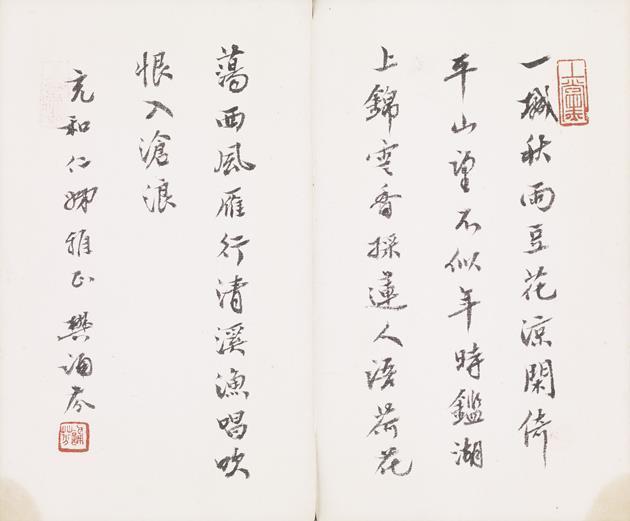 一城秋雨豆花涼閑倚
平山望不似年時鑑湖
上錦雲香採蓮人語荷花
蕩西風雁行清溪漁唱吹
恨入滄浪
充和仁姊雅正 樊誦芬
誦芬